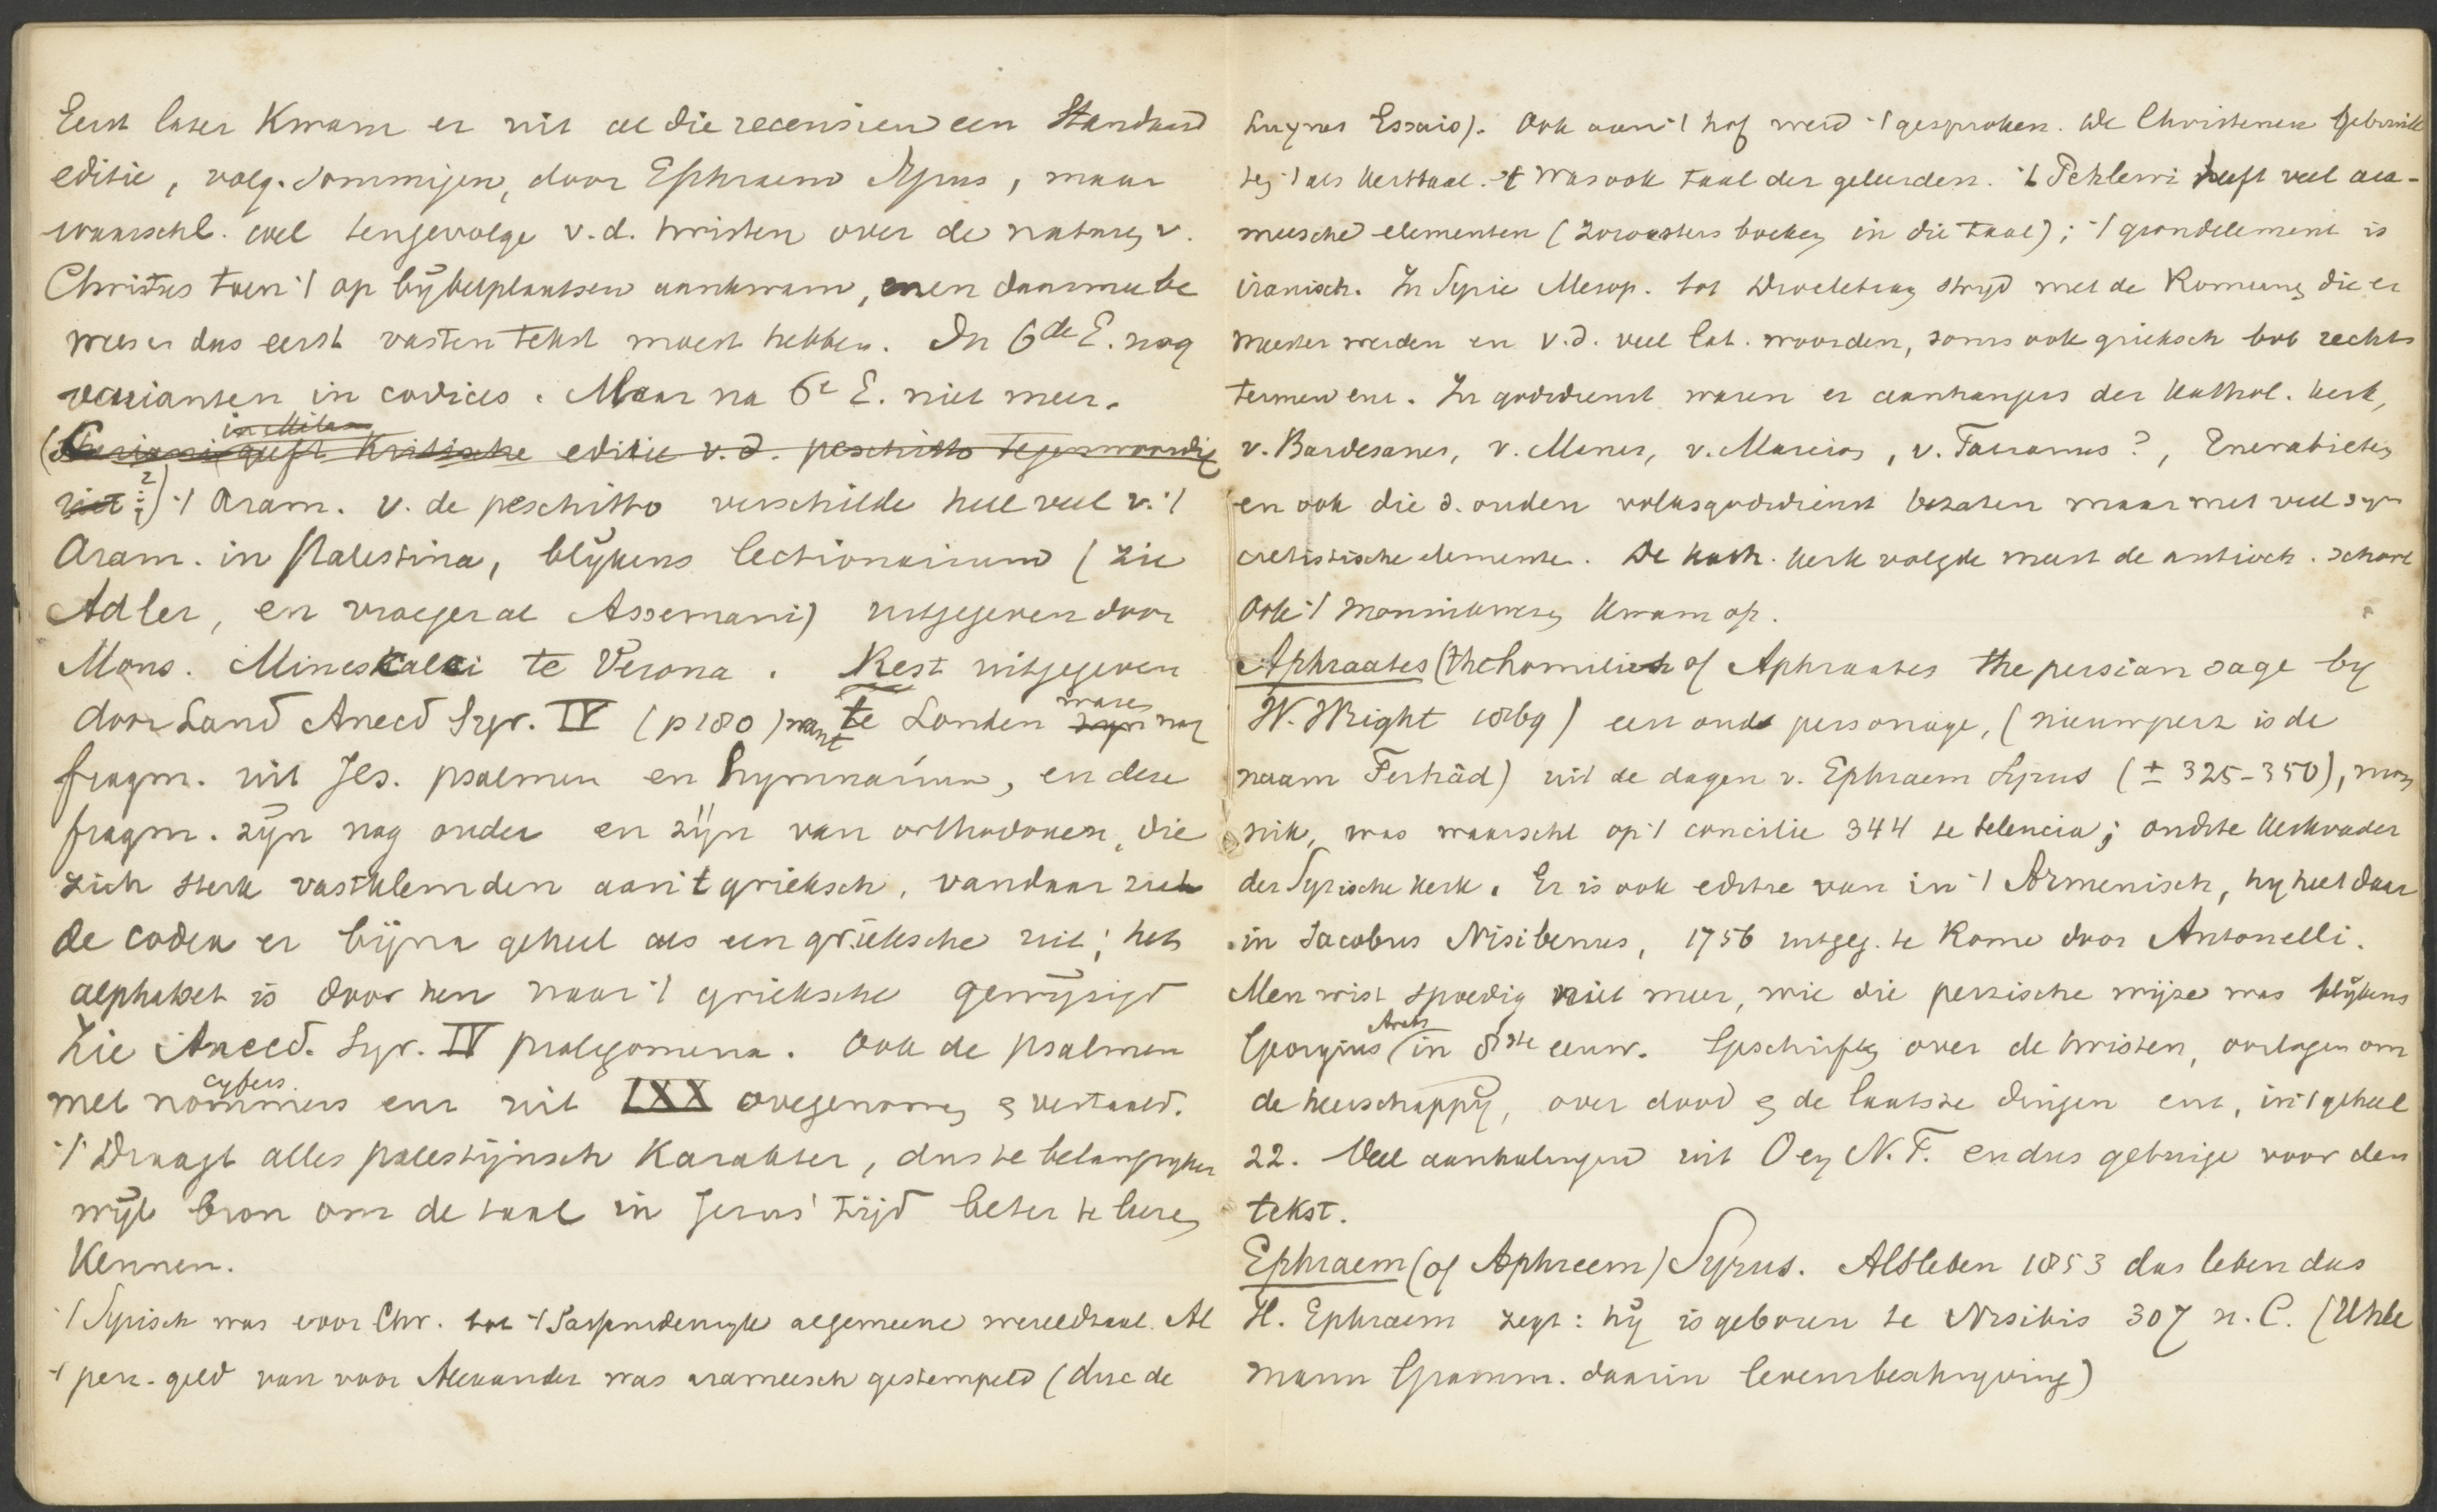 Eerst later kwam er uit al die recensien een Standaard
editie, volg. sommigen, door Ephraem Syrus, maar
waarschl. wel tengevolge v.d. twisten over de naturen v.
Christus toen 't op bijbelplaatsen aankwam, men daarmee be
wees en dus eerst vasten tekst moest hebben. In 6de E. nog
varianten in codices. Maar na 6e E. niet meer.
in Milaan
geeft kritische editie v.d. peschitto tegenwoordig
't Aram. v. de peschitto verschilde heel veel v. 't
Aram. in Palestina, blijkens lectionarium (zie
Adler, en vroeger al Assemani) uitgegeven door
Mons. Miniskalki te Verona. Rest uitgegeven
door Land Anecd Syr. IV (p 180) want te Londen waren nog
fragm. uit Jes. psalmen en hymnarium, en deze
fragm. zijn nog ouder en zijn van orthodoxen, die
zich sterk vastklemden aan 't grieksch, vandaar ziet
de codex er bijna geheel als een grieksche uit; het
alphabet is door hen naar 't grieksche gewijzigd
Zie Anecd. Syr. IV prolegomena. Ook de psalmen
cyfers
met nommers enz uit LXX overgenomen & vertaald.
't Draagt alles palestijnsch karakter, dus te belangrijker
wijl bron om de taal in Jezus' tijd beter te leeren
kennen.
't Syrisch was voor Chr. tot 't Sassanidenrijk algemeene wereldtaal. Al
't perz. geld van voor Alexander was arameesch gestempeld (duc de
Luynes Essais). Ook aan 't hof werd 't gesproken. De Christenen gebruik
ten 't als kerktaal. 't Was ook taal der geleerden. 't Pehlewi heeft veel ara-
meesche elementen (Zoroasters boeken in die taal); 't grondelement is
iranisch. In Syrie Mesop. tot Diocletian strijd met de Romeinen die er
meester werden en v.d. veel lat. woorden, soms ook grieksch bvb rechts
termen enz. In godsdienst waren er aanhangers der Kathol. kerk,
v. Bardesanes, v. Manes, v. Marcion, v. Tatianus?, Encratieten
en ook die d. ouden volksgodsdienst bezaten maar met veel syn
cretistische elementen. De kath. kerk volgde meest de antioch. school
Ook 't monnikwezen kwam op.
Aphraates (the homilies of Aphraates the persian sage by
W. Wright 1869) een oude personage, (nieuwperz is de
naam Ferhâd) uit de dagen v. Ephraem Syrus (± 325-350), mon
nik, was waarschl op 't concilie 344 te Selencia; oudste kerkvader
der Syrische kerk. Er is ook editie van in 't Armenisch, hij heet daar
in Jacobus Nisibenus, 1756 uitgeg. te Rome door Antonelli.
Men wist spoedig niet meer, wie die perzische wijze was blijkens
Arab
Georgius in 8ste eeuw. Geschriften over de twisten, oorlogen om
de heerschappij, over dood & de laatste dingen enz, in 't geheel
22. Veel aanhalingen uit O en N.T. en dus getuige voor den
tekst.
Ephraem (of Aphreem) Syrus. Alsleben 1853 das leben das
H. Ephraem zegt: hij is geboren te Nisibis 307 n. C. (Uhle
mann Gramm. daarin levensbeschrijving)